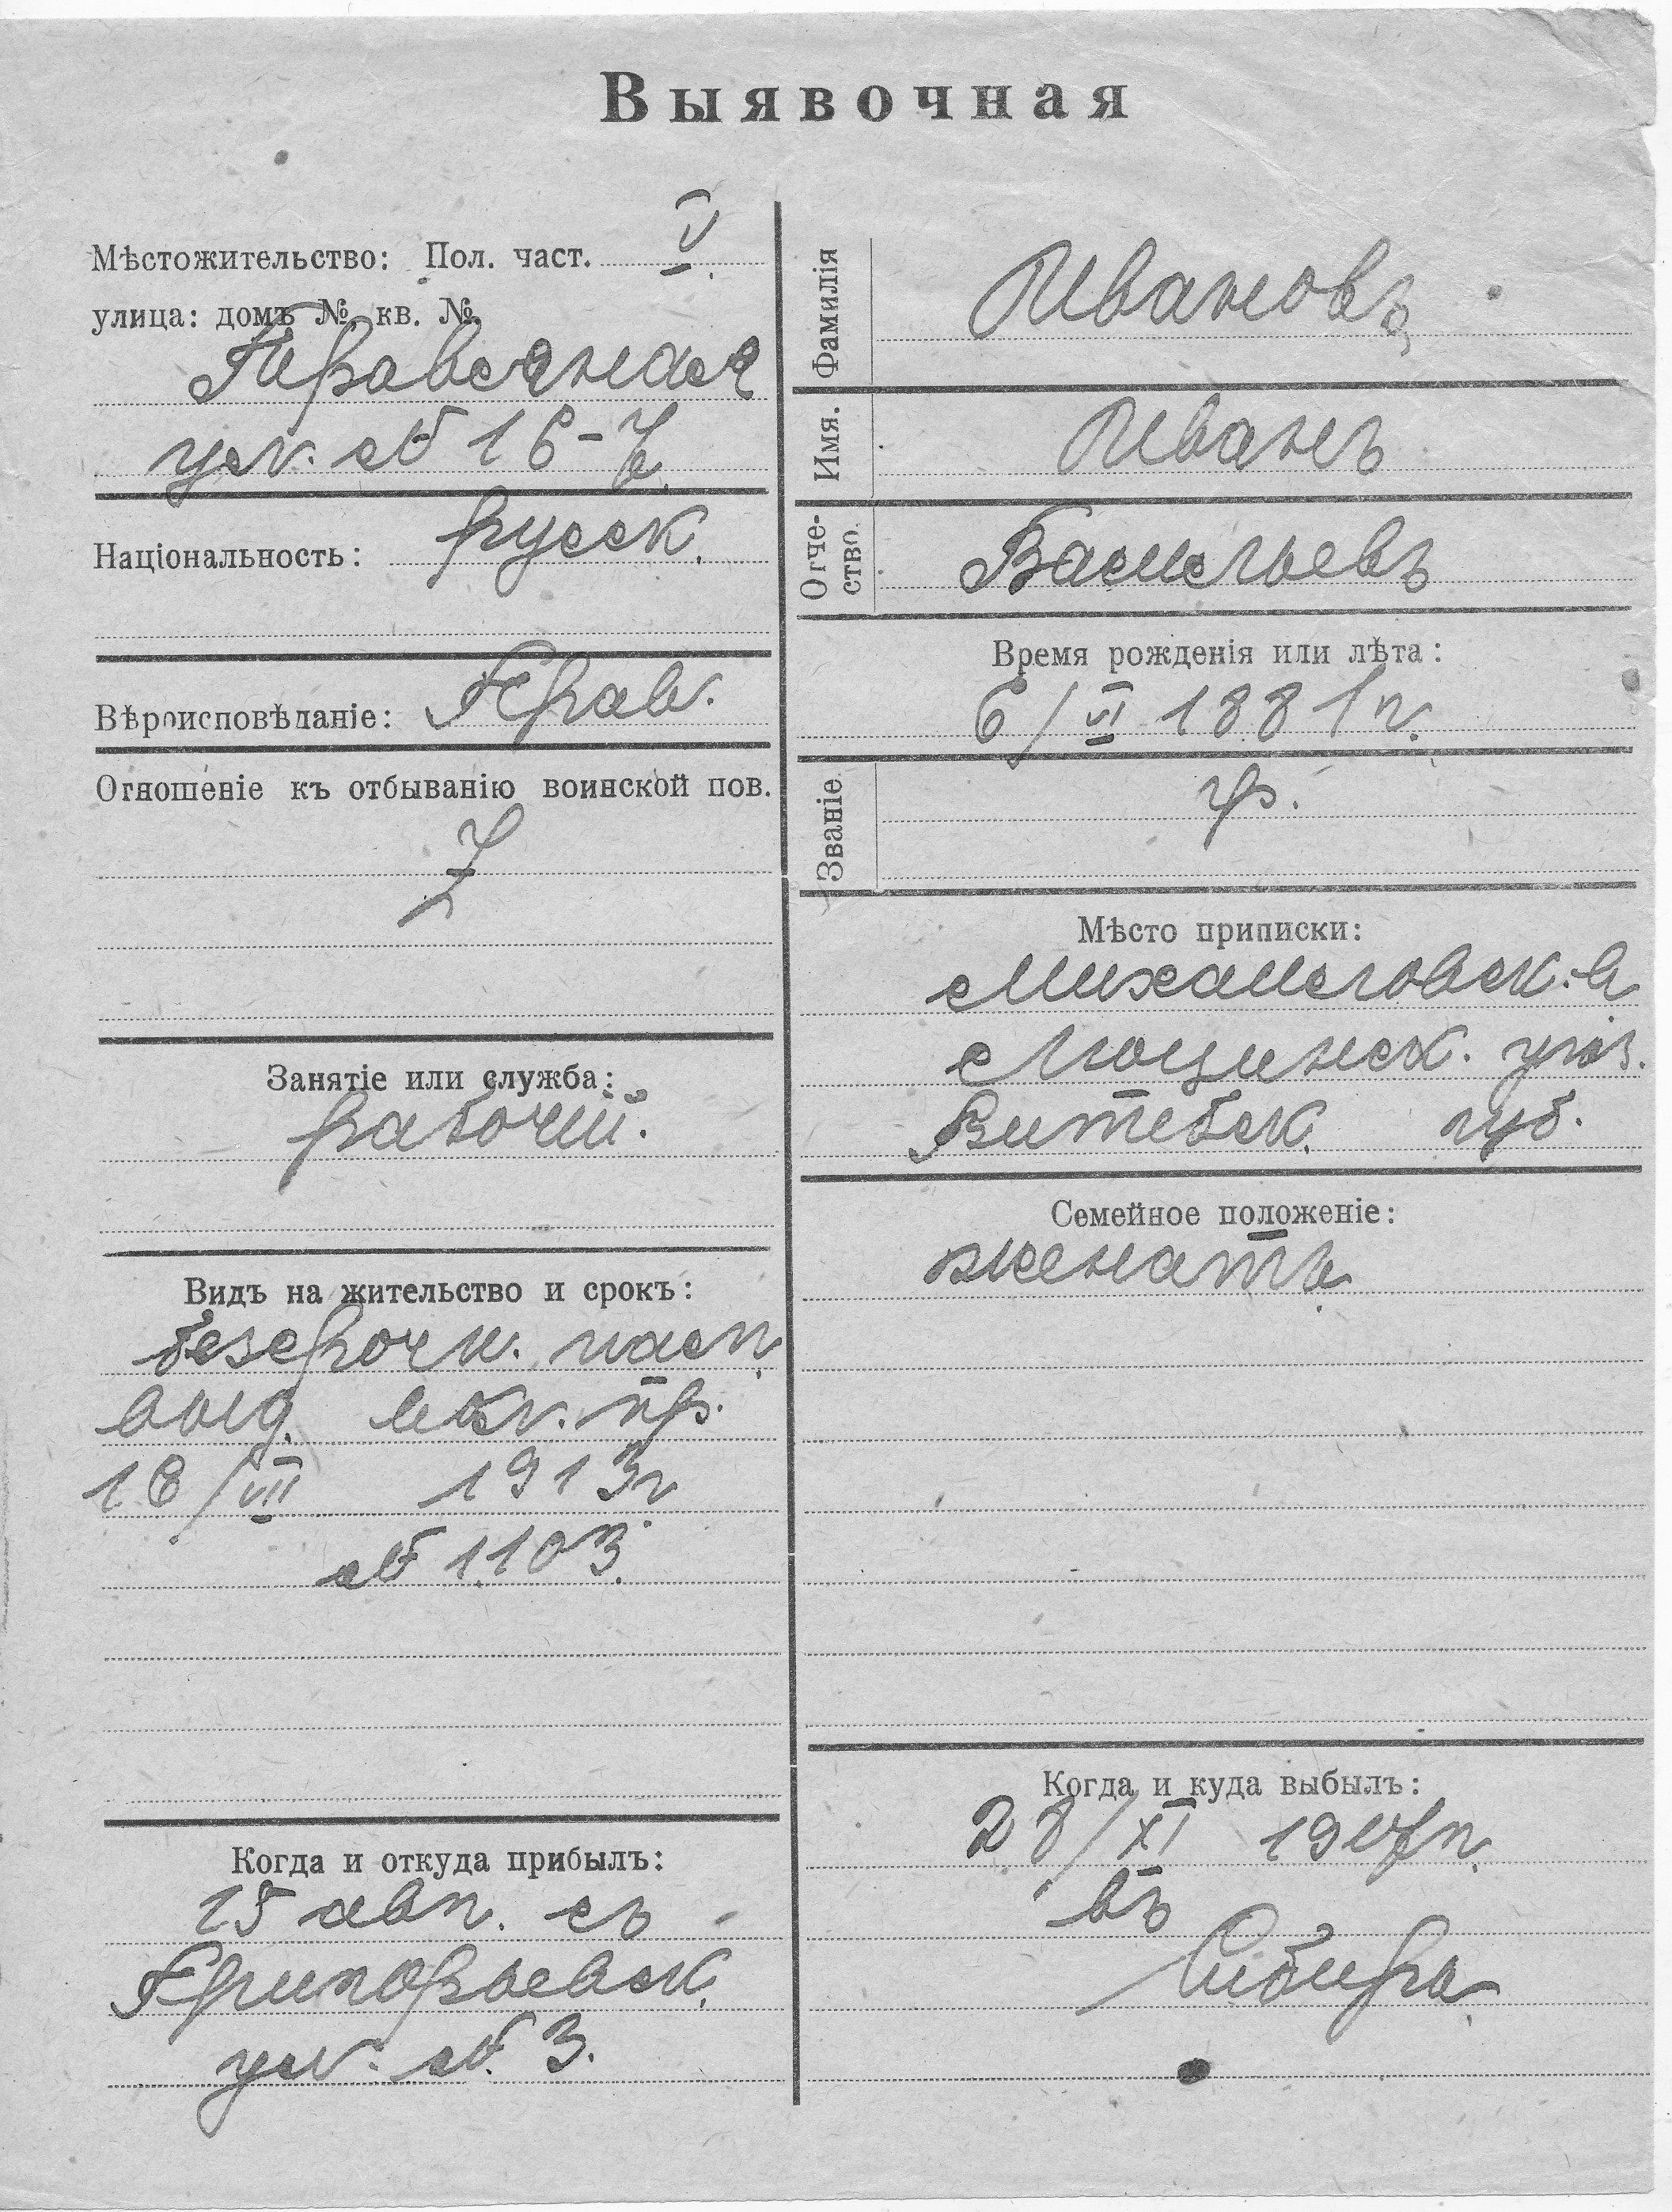 Выявочная
Мѣстожительство: Пол. част. V
улица: домъ № кв. №
ул. № 16-7
Національность: русск.
Вѣроисповѣданіе: Прав.
Отношеніе къ отбыванію воинской пов.
Z
Занятіе или служба:
рабочій.
Видъ на жительство и срокъ:
безсрочн. пасп.
выд. пр.
16/VII 1913г
№ 1103.
Когда и откуда прибылъ:
15 авг. съ
Григорьевск.
ул. № 3.
Фамилія Ивановъ
Имя. Иванъ
Отчество. Васильевъ
Время рожденія или лѣта:
6/VI 1881г.
Званіе кр.
Мѣсто приписки:
Михайловск. в.
Люцинск. уѣз.
Витебск. губ.
Семейное положеніе:
женатъ
Когда и куда выбылъ:
28/XI г.
въ
Сибирь